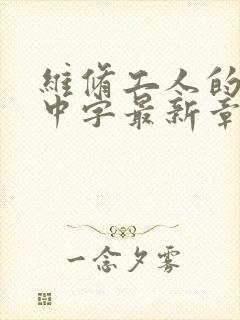 維脩工人的
中字最新章
一念夕雾